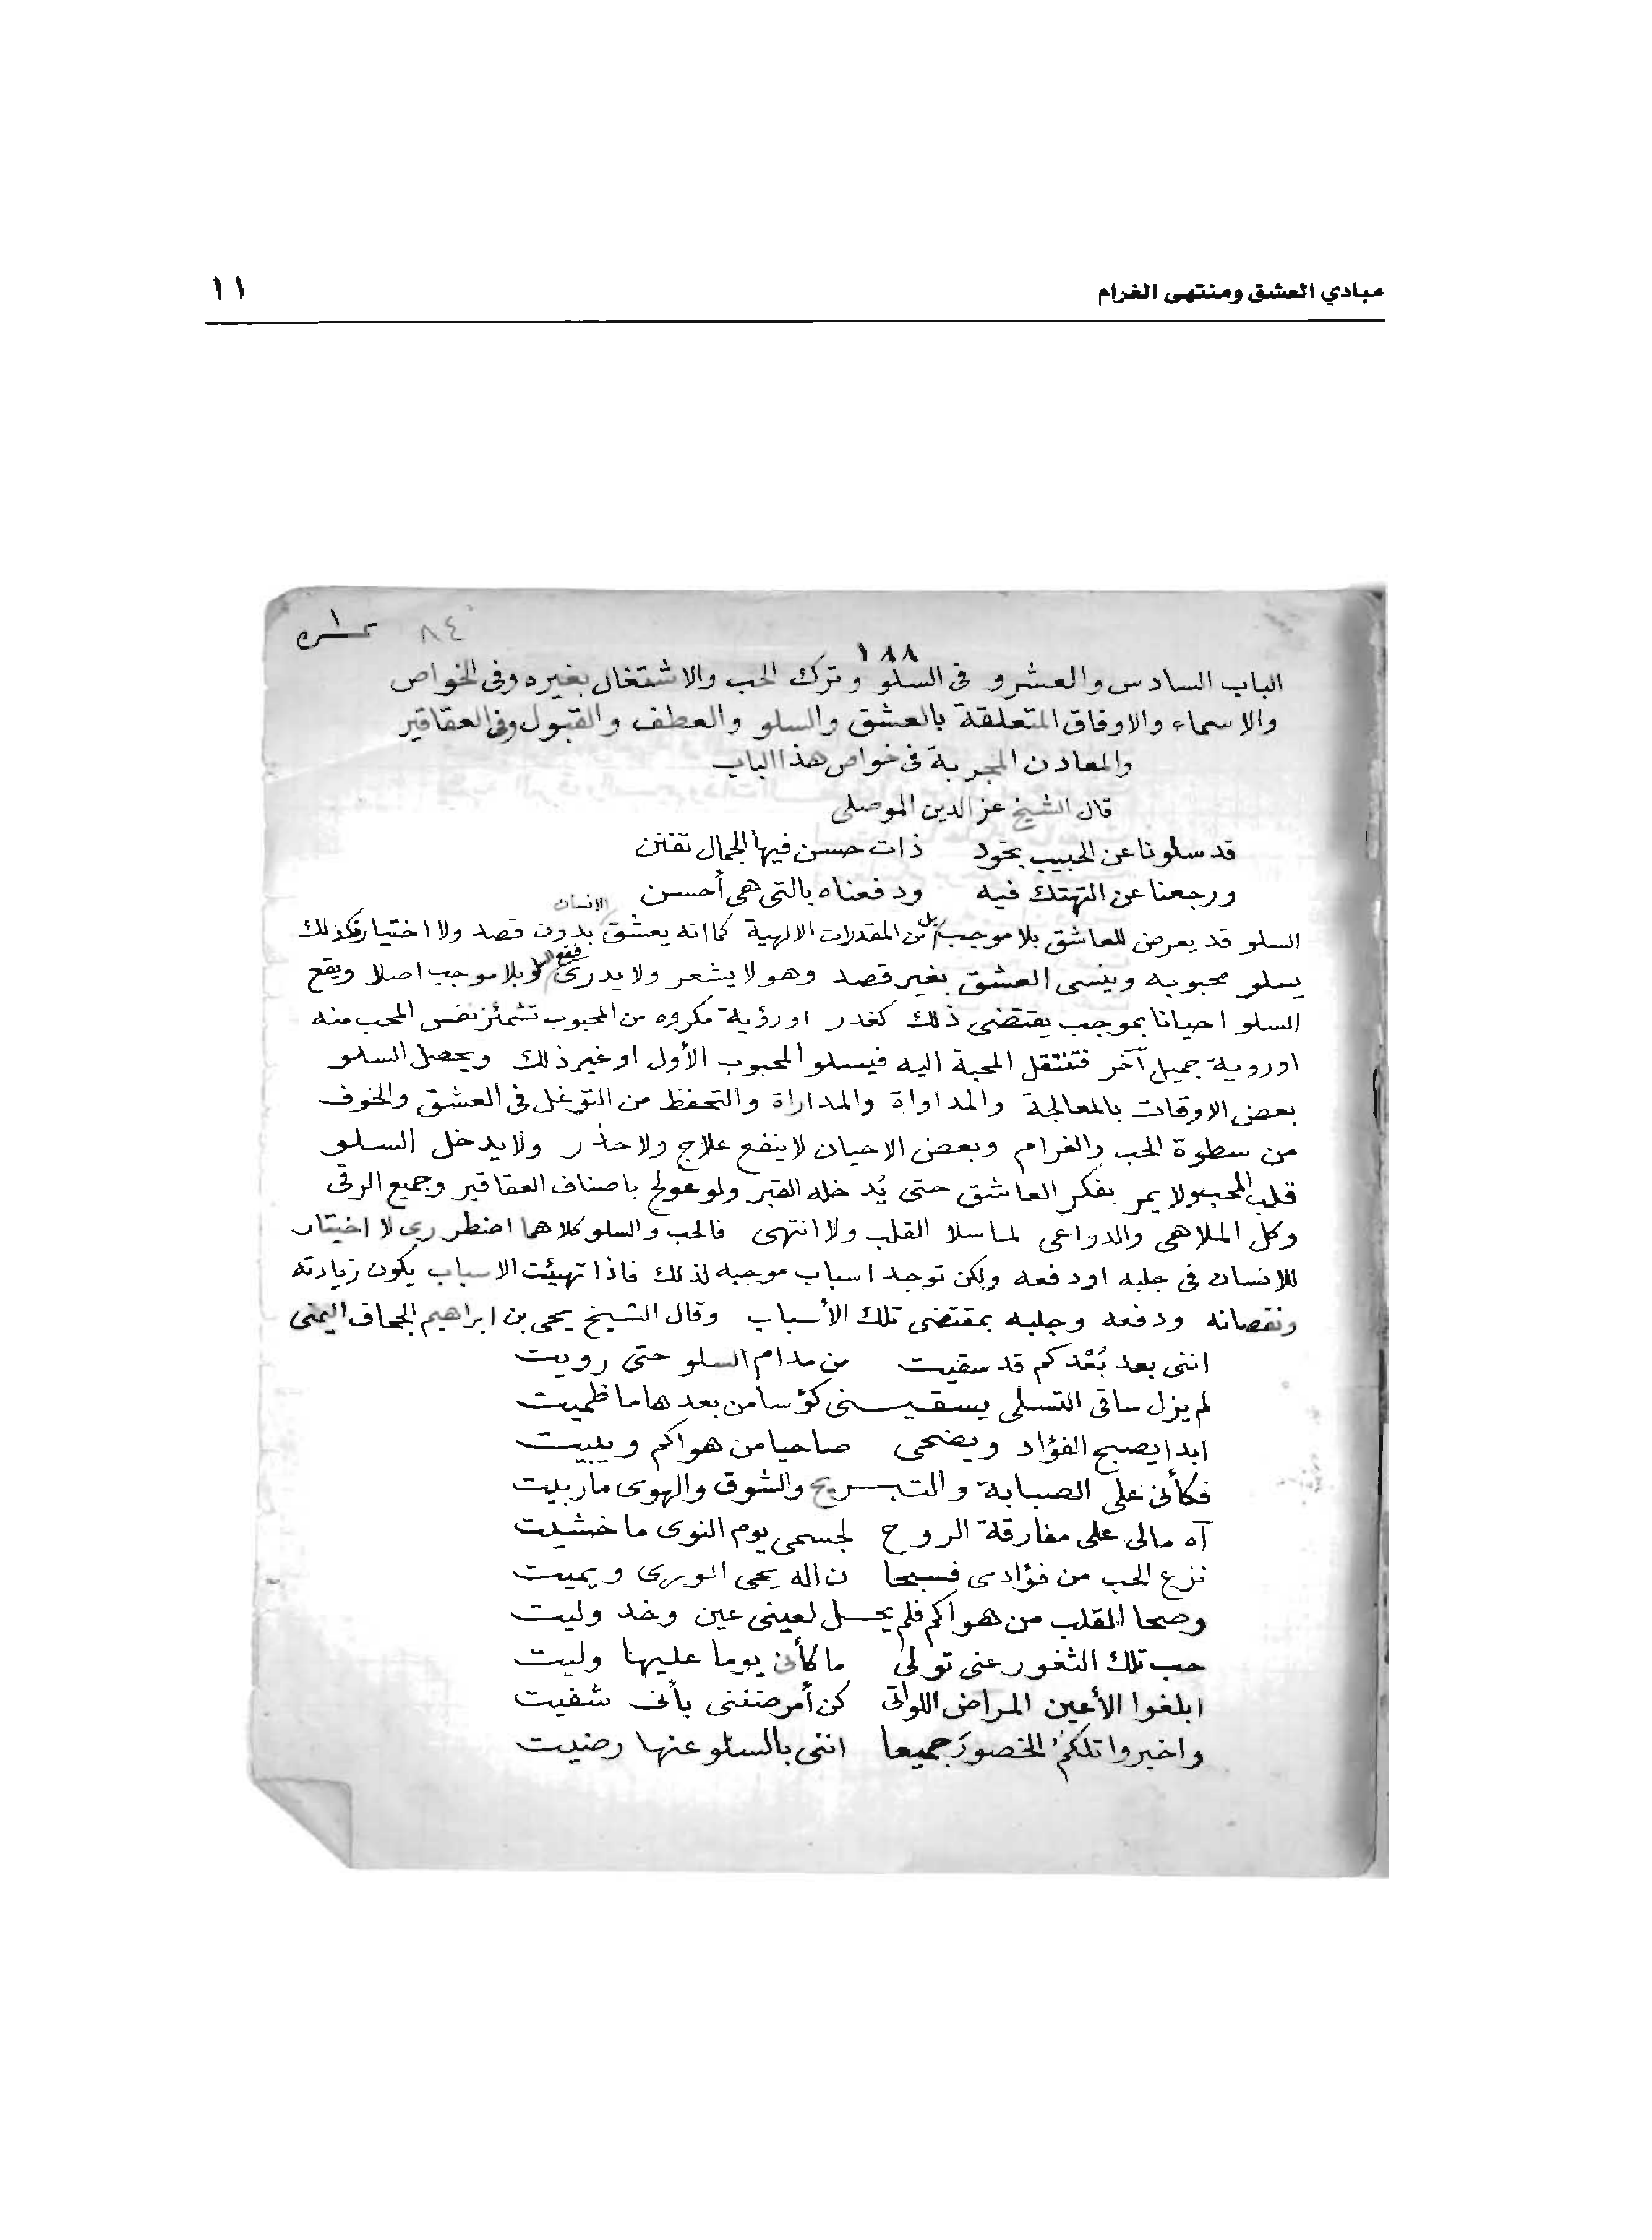 مبادي العشق ومنتهى الغرام
١١
٨٤
١٨٨
الباب السادس والعشرو فى السلو وترك الحب والاشتغال بغيره وفى الخواص
والاسماء والاوفاق المتعلقة بالعشق والسلو والعطف والقبول وفى العقاقير
والمعادن المجربة فى خواص هذا الباب
قال الشيخ عز الدين الموصلى
قد سلونا عن الحبيب بخود ذات حسن فيها الجمال تفنن
ورجعنا عن التهتك فيه ودفعناه بالتى هى أحسن
السلو قد يعرض للعاشق بلا موجب بل من المقدرات الالهية كما انه يعشق الانسان بدون قصد ولا اختيار فكذلك
يسلو محبوبه وينسى العشق بغير قصد وهو لا يشعر ولا يدرى فيقع السلو بلا موجب اصلا ويقع
السلو احيانا بموجب يقتضى ذلك كغدر او رؤية مكروه من المحبوب تشمئز نفس المحب منه
او روية جميل آخر فتنتقل المحبة اليه فيسلو المحبوب الأول او غير ذلك ويحصل السلو
بعض الاوقات بالمعالجة والمداواة والمداراة والتحفظ من التوغل فى العشق والخوف
من سطوة الحب والغرام وبعض الاحيان لا ينفع علاج ولا حذر ولا يدخل السلو
قلب المحب ولا يمر بفكر العاشق حتى يُدخله القبر ولو عولج باصناف العقاقير وجميع الرقى
وكل الملاهى والدواعى لما سلا القلب ولا انتهى فالحب والسلو كلاهما اضطررى لا اختيار
للانسان فى جلبه او دفعه ولكن توجد اسباب موجبه لذلك فاذا تهيئت الاسباب يكون زيادته
ونقصانه ودفعه وجلبه بمقتضى تلك الأسباب وقال الشيخ يحى بن ابراهيم الجحاف اليمنى
اننى بعد بُعْدكم قد سقيت من مدام السلو حتى رويت
لم يزل ساقى التسلى يسقيـنى كؤسا من بعدها ما ظميت
ابدا يصبح الفؤاد ويضحى صاحيا من هواكم ويبيت
فكأنى على الصبابة والتبـريح والشوق والهوى ما ربيت
آه مالى على مفارقة الروح لجسمى يوم النوى ما خشيت
نزع الحب من فؤادى فسبحا ن اله يحى الورى ويميت
وصحا القلب من هواكم فلم يحـل لعينى عين وخد وليت
حب تلك الثغور عنى تولى ما كأنى يوما عليها وليت
ابلغوا الأعين المراض اللواتى كن أمرضننى بأنى شفيت
واخبروا تلكمُ الخصورَ جميعا اننى بالسلو عنها رضيت